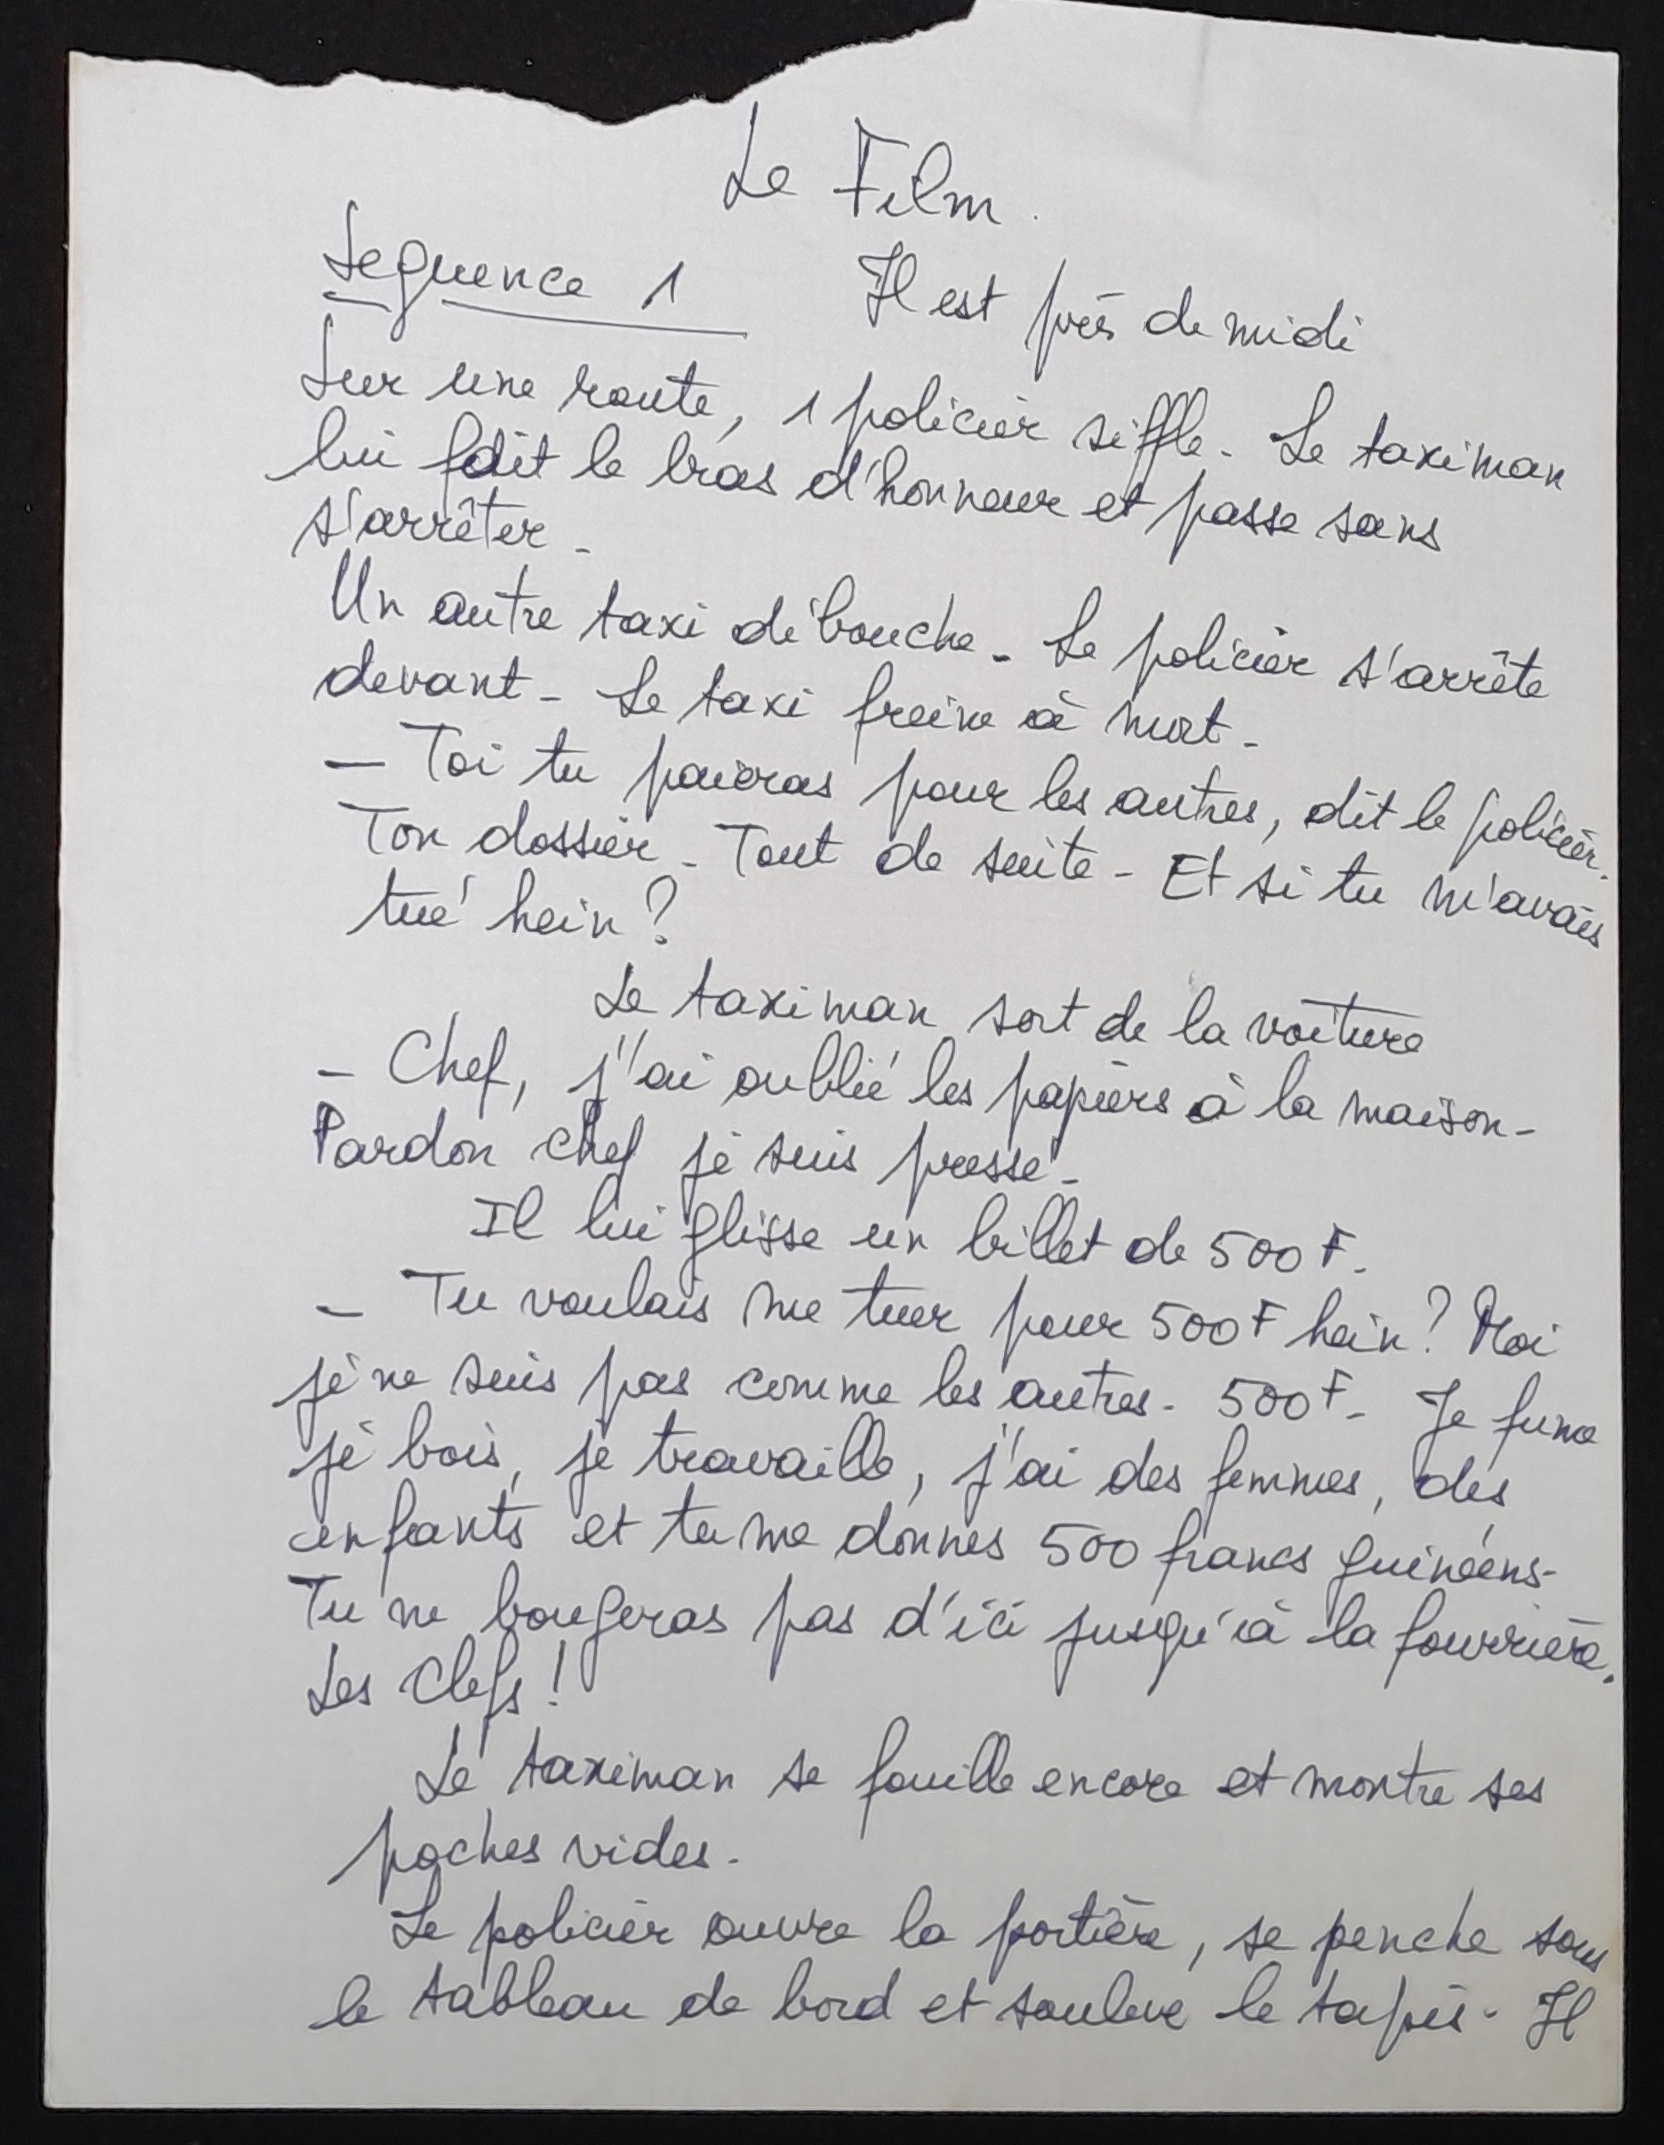 Le Film.
Sequence 1 Il est près de midi
Sur une route, 1 policier siffle. Le taximan
lui fait le bras d'honneur et passe sans
s'arrêter.
Un autre taxi débouche. Le policier s'arrête
devant. Le taxi freine à mort.
- Toi tu paieras pour les autres, dit le policier.
Ton dossier. Tout de suite. Et si tu m'avais
tué hein?
Le taximan sort de la voiture
- Chef, j'ai oublié les papiers à la maison.
Pardon chef je suis pressé.
Il lui glisse un billet de 500 F.
- Tu voulais me tuer pour 500 F hein? Moi
je ne suis pas comme les autres. 500 F. Je fume
je bois, je travaille, j'ai des femmes, des
enfants et tu me donnes 500 francs guinéens.
Tu ne bougeras pas d'ici jusqu'à la fourrière.
Les clefs!
Le taximan se fouille encore et montre ses
poches vides.
Le policier ouvre la portière, se penche sous
le tableau de bord et soulève le tapis. Il